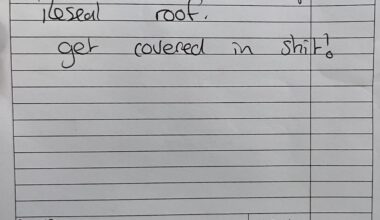 reseal roof.
get covered in shit!